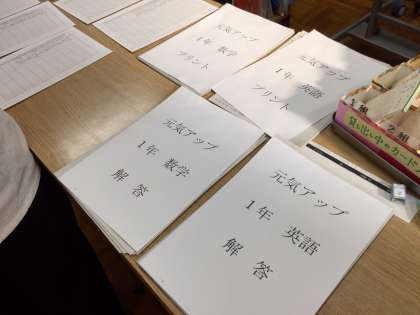 元気アップ
1年 数学
プリント
元気アップ
1年 英語
プリント
元気アップ
1年 数学
解答
元気アップ
1年 英語
解答
1組
2組
貸し出し中のカード